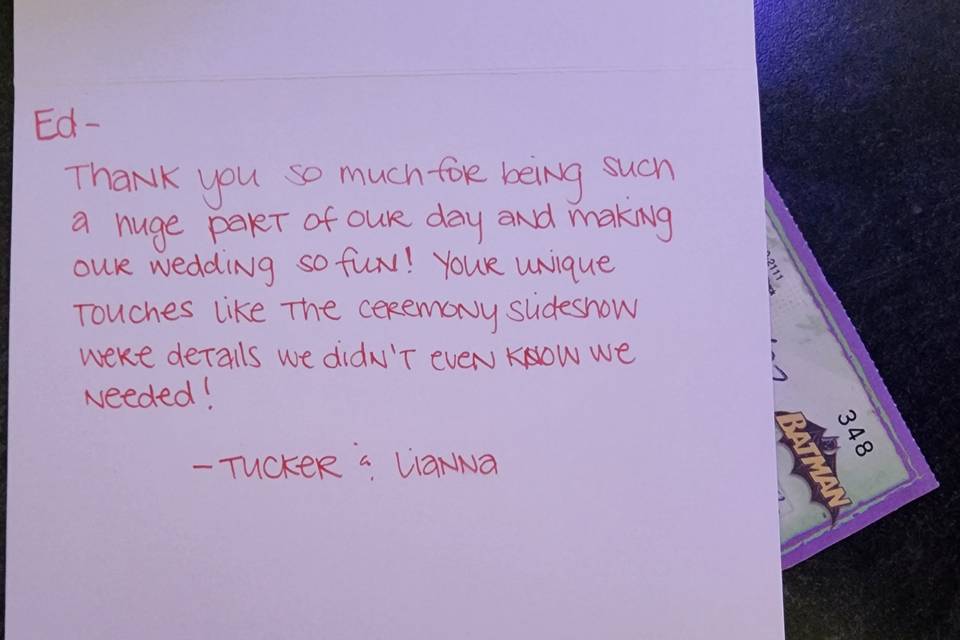 Ed-
Thank you so much for being such
a huge part of our day and making
our wedding so fun! Your unique
touches like the ceremony slideshow
were details we didn't even know we
needed!
- Tucker & Lianna
2111
348
BATMAN